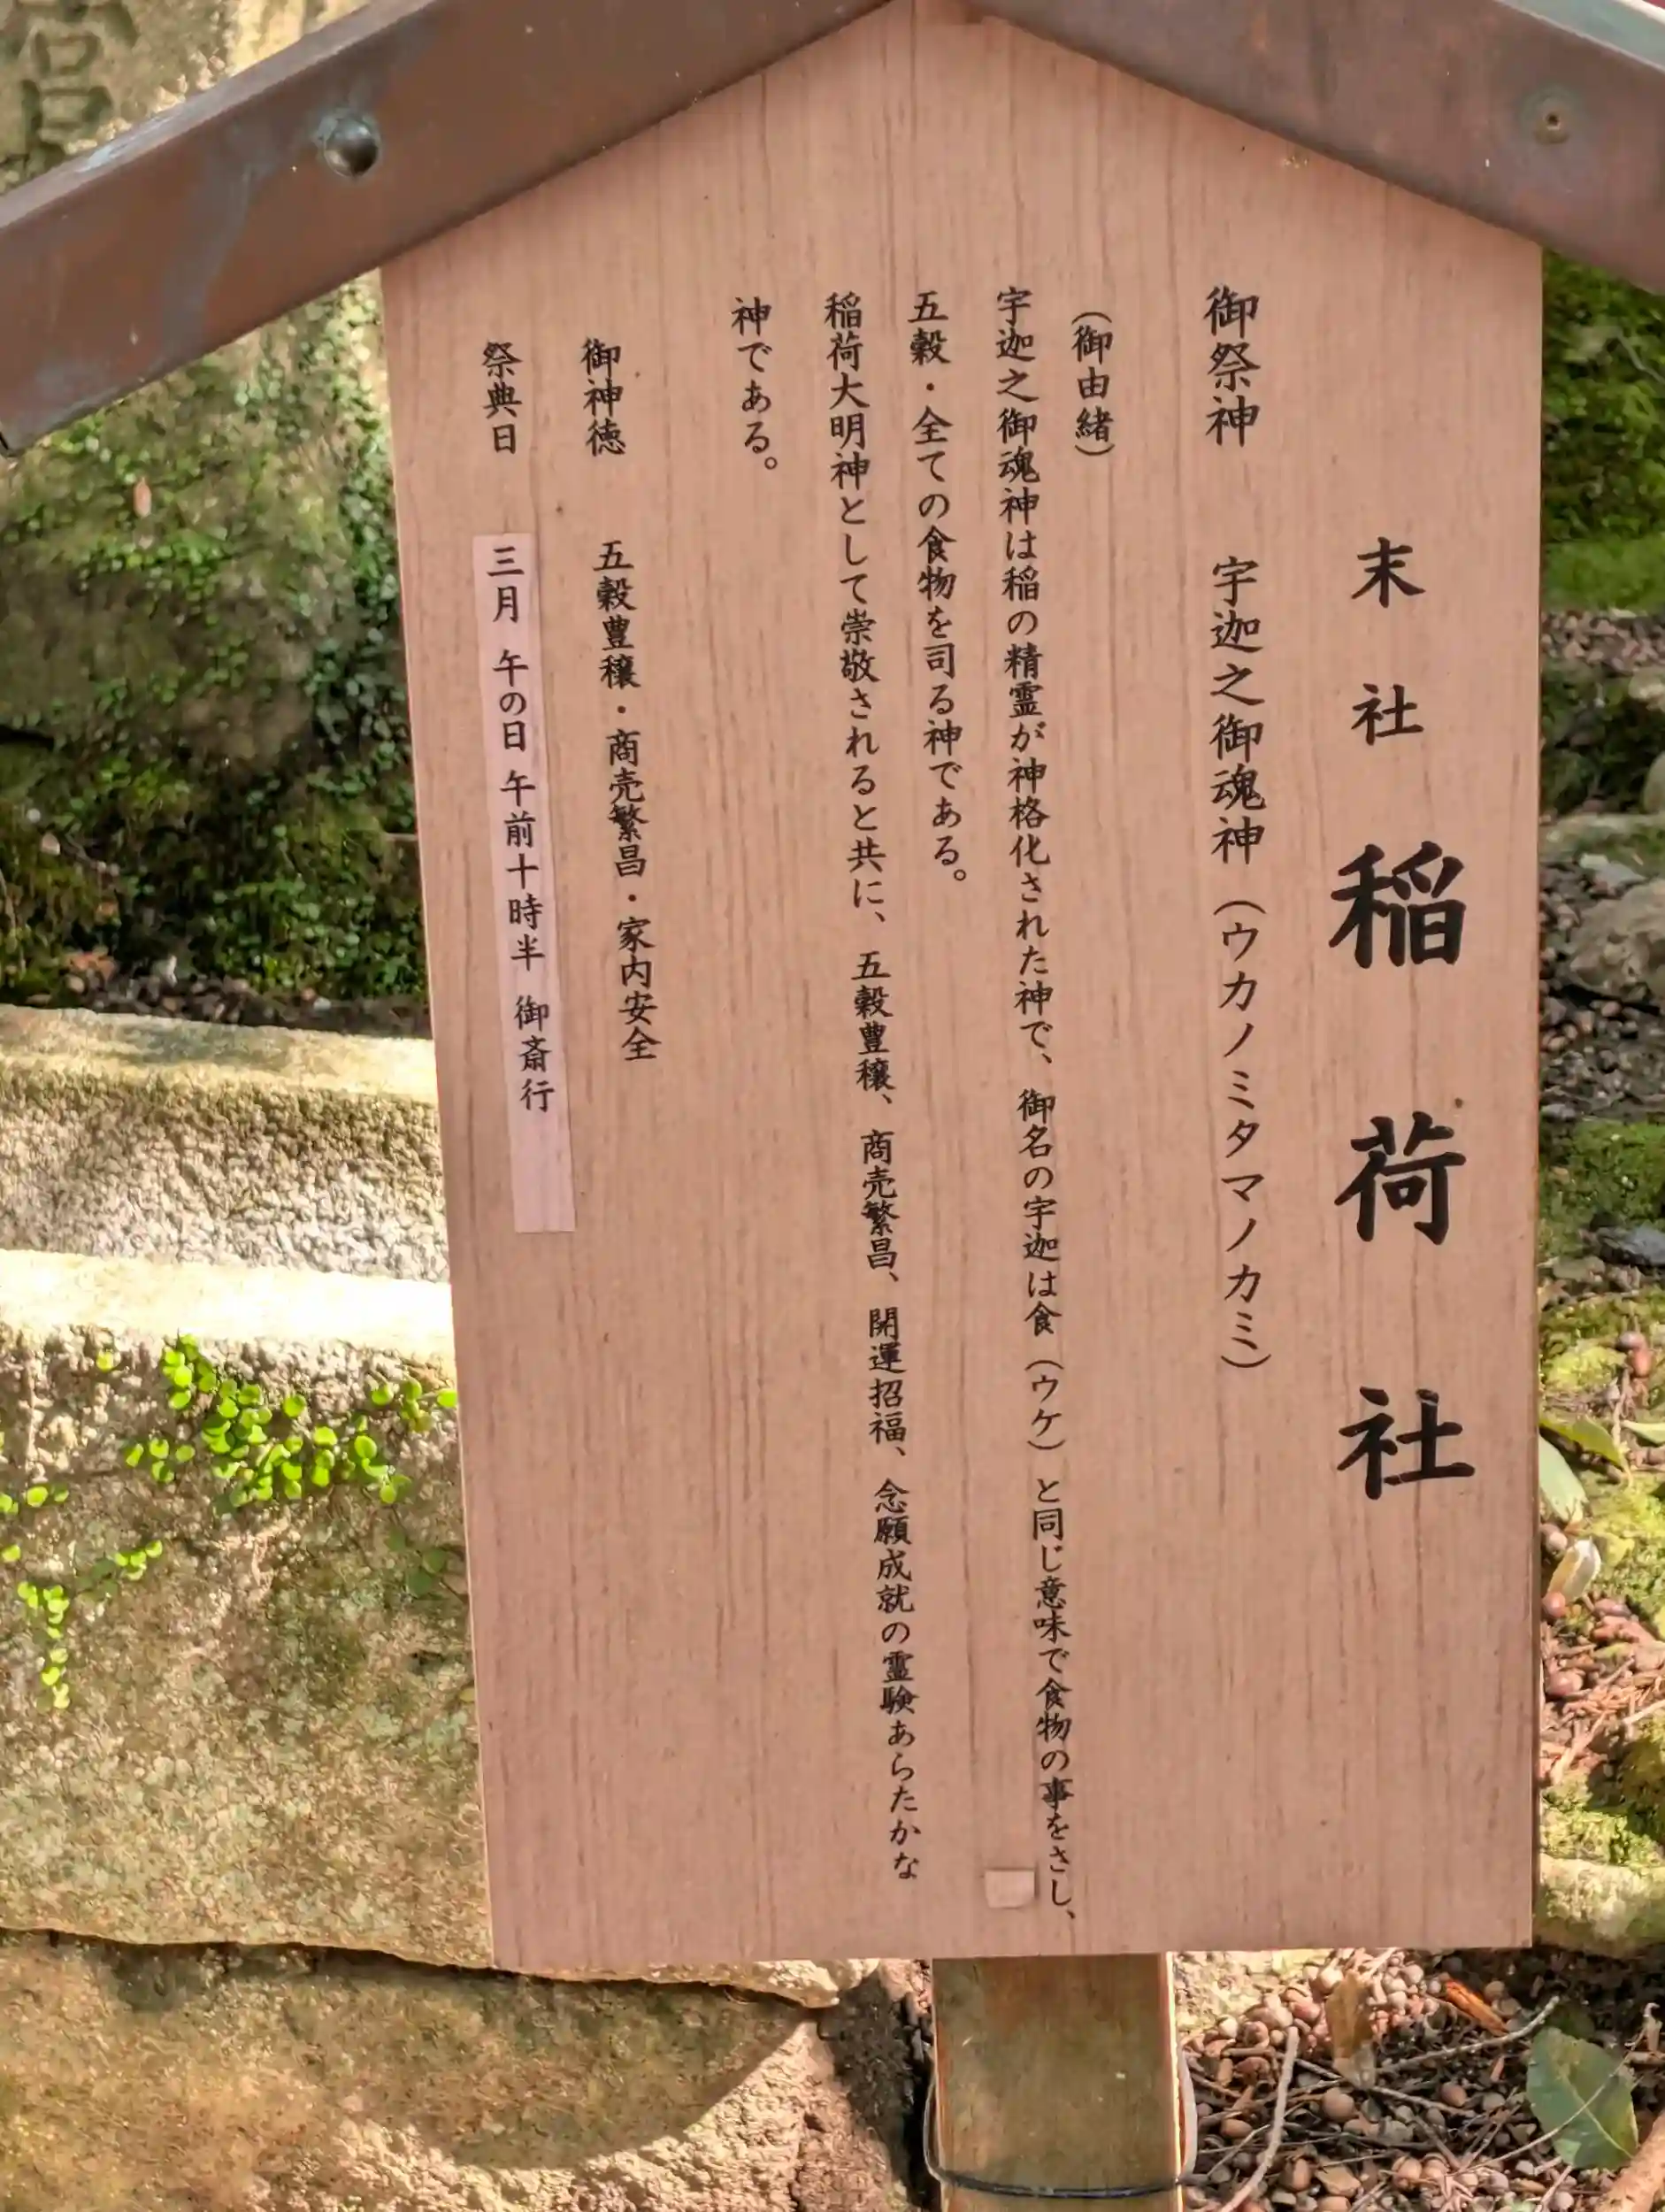 末社 稲荷社
御祭神 宇迦之御魂神(ウカノミタマノカミ)
(御由緒)
宇迦之御魂神は稲の精霊が神格化された神で、御名の宇迦は食(ウケ)と同じ意味で食物の事をさし、
五穀・全ての食物を司る神である。
稲荷大明神として崇敬されると共に、五穀豊穣、商売繁昌、開運招福、念願成就の霊験あらたかな
神である。
御神徳 五穀豊穣・商売繁昌・家内安全
祭典日 三月 午の日 午前十時半 御斎行